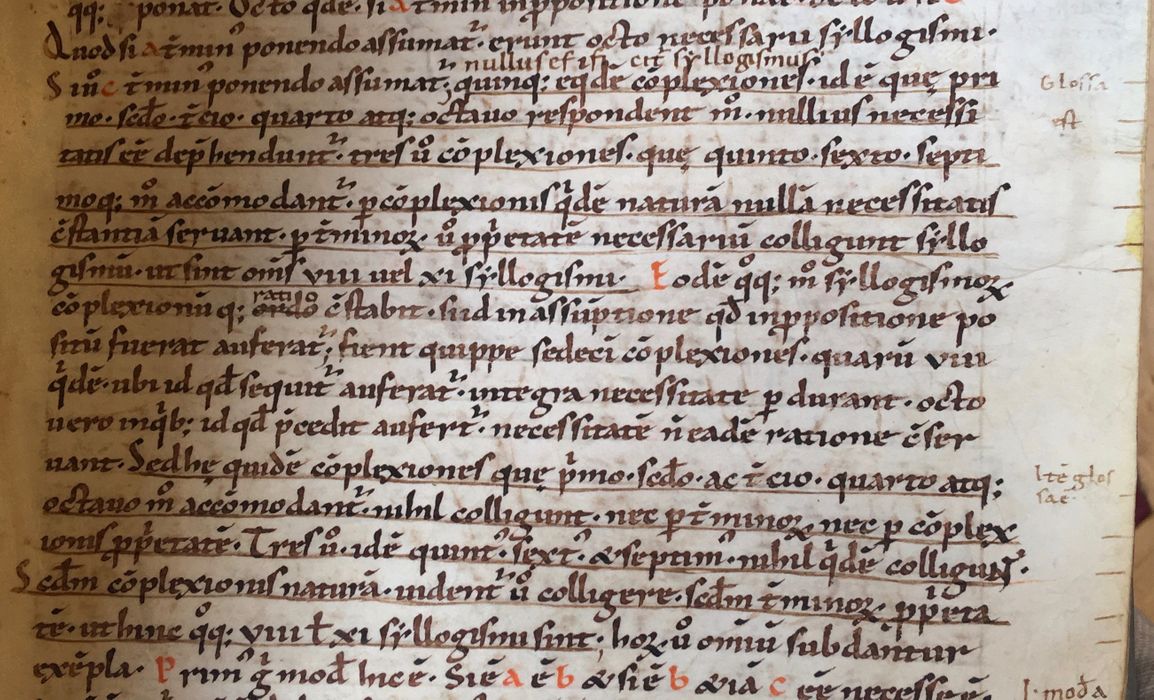 qq; ponat. Octo qđe. si a t̄min in ppositione ponat
Quod si a t̄min' ponendo assumat̄. erunt octo necessarii syllogismi.
nullus ef ifi cit syllogismus
Si uo c t̄min' ponendo assumat̄; quinq; eqđe cōplexiones. id ē quę pri
mo. scđo. t̄cio. quarto atq; octauo respondent m̊. nullius necessi
Glossa
est
tatis eē dep̄hendunt̄. tres ů cōplexiones. quę quinto. sexto. septi
moq; m̊ accōmodant̄. p cōplexionis q̍dē naturā nullā necessitatis
c̄stantiā seruant. p t̄minoꝝ. ů pp̍etatē necessariū colligunt syllo
gismū. ut sint om̄s viii uel xi syllogismi. Eodē q̊q; m̊ syllogismoꝝ
rati
cōplexionū q; ordo c̄stabit. si id in assūptione qđ in ppositione po
sitū fuerat auferat̄; fient quippe sedeci cōplexiones. quarū viii
q̍dē. ubi id qđ sequit̄ auferat̄. integra necessitate p durant. octo
uero in q̍b; id qđ p̄cedit aufert̄. necessitatē n̄ eadē ratione c̄ser
uant. Sed hę quidē cōplexiones quę p̍mo. scđo. ac t̄cio. quarto atq;
Itē glos
saē
octauo m̊ accōmodant̄. nihil colligunt. nec p t̄minoꝝ. nec p cōplex
ionis pp̍etatē. Tres ů. idē quint'. sext'. & septim'. nihil q̍dē colligunt.
Scđm cōplexionis naturā. uident̄ ů colligere. scđm t̄minoꝝ. pp̍eta
tē. ut hinc q̊q; viii ł xi syllogismi sint; hoꝝ ů omiū subdāntur
exēpla. Prim' g̍ mod' hic ē. Si ē a ē b & si ē b & iā c eē necesse ē
I. moda